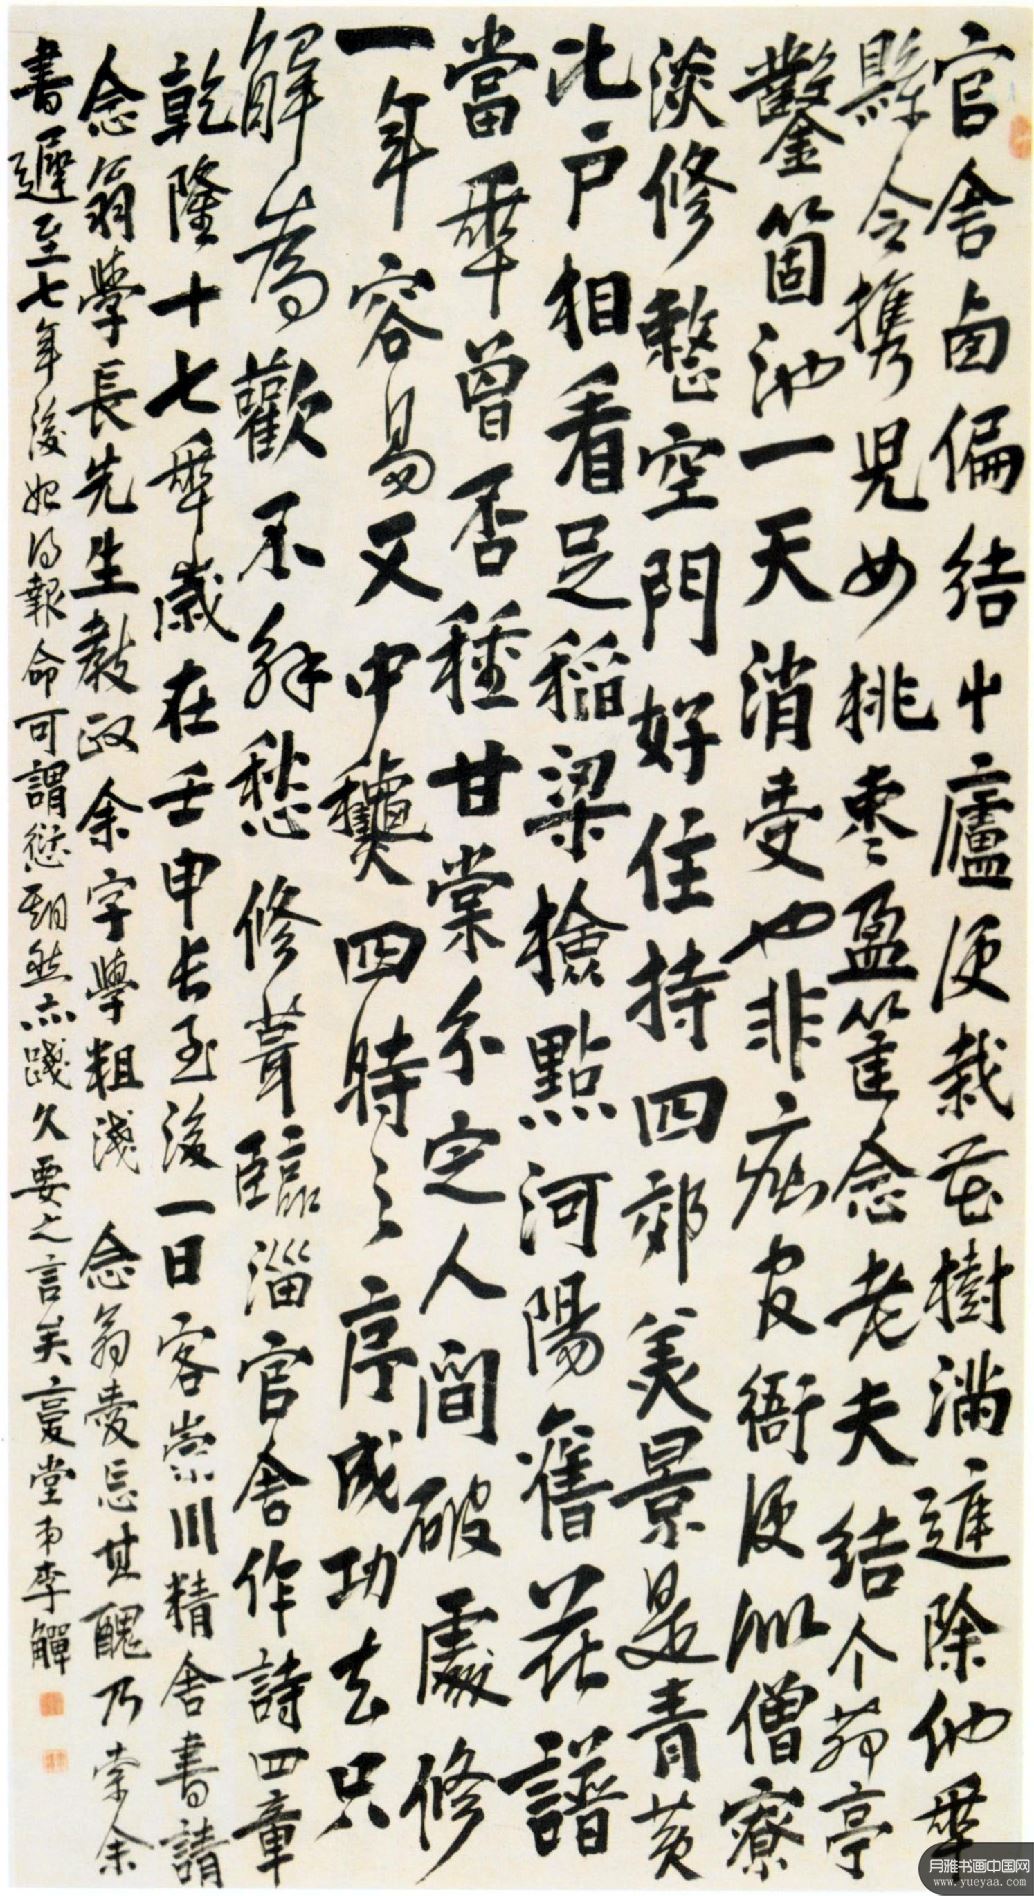 官舍鹵偏結草廬便栽花樹滿庭除他年
縣令携兒女桃棗盈筐念老夫結个茆亭
鑿箇池一天消受也非疵官衙便似僧寮
淡修整空門好住持四郊美景是青黄
比户相看足稻粱撿點河陽舊花譜
當年曾否種甘棠分定人間破處修
一年容易又中穐四時之序成功去只
解為歡不解愁修葺臨淄官舍作詩四章
乾隆十七年歲在壬申長至後一日客崇川精舍書請
念翁學長先生教政余字學粗淺念翁愛忘其醜乃索余
書遲至七年後始得報命可謂愆期然亦踐久要之言矣憂堂弟李觶
月雅书画中国网
www.yueyaa.com